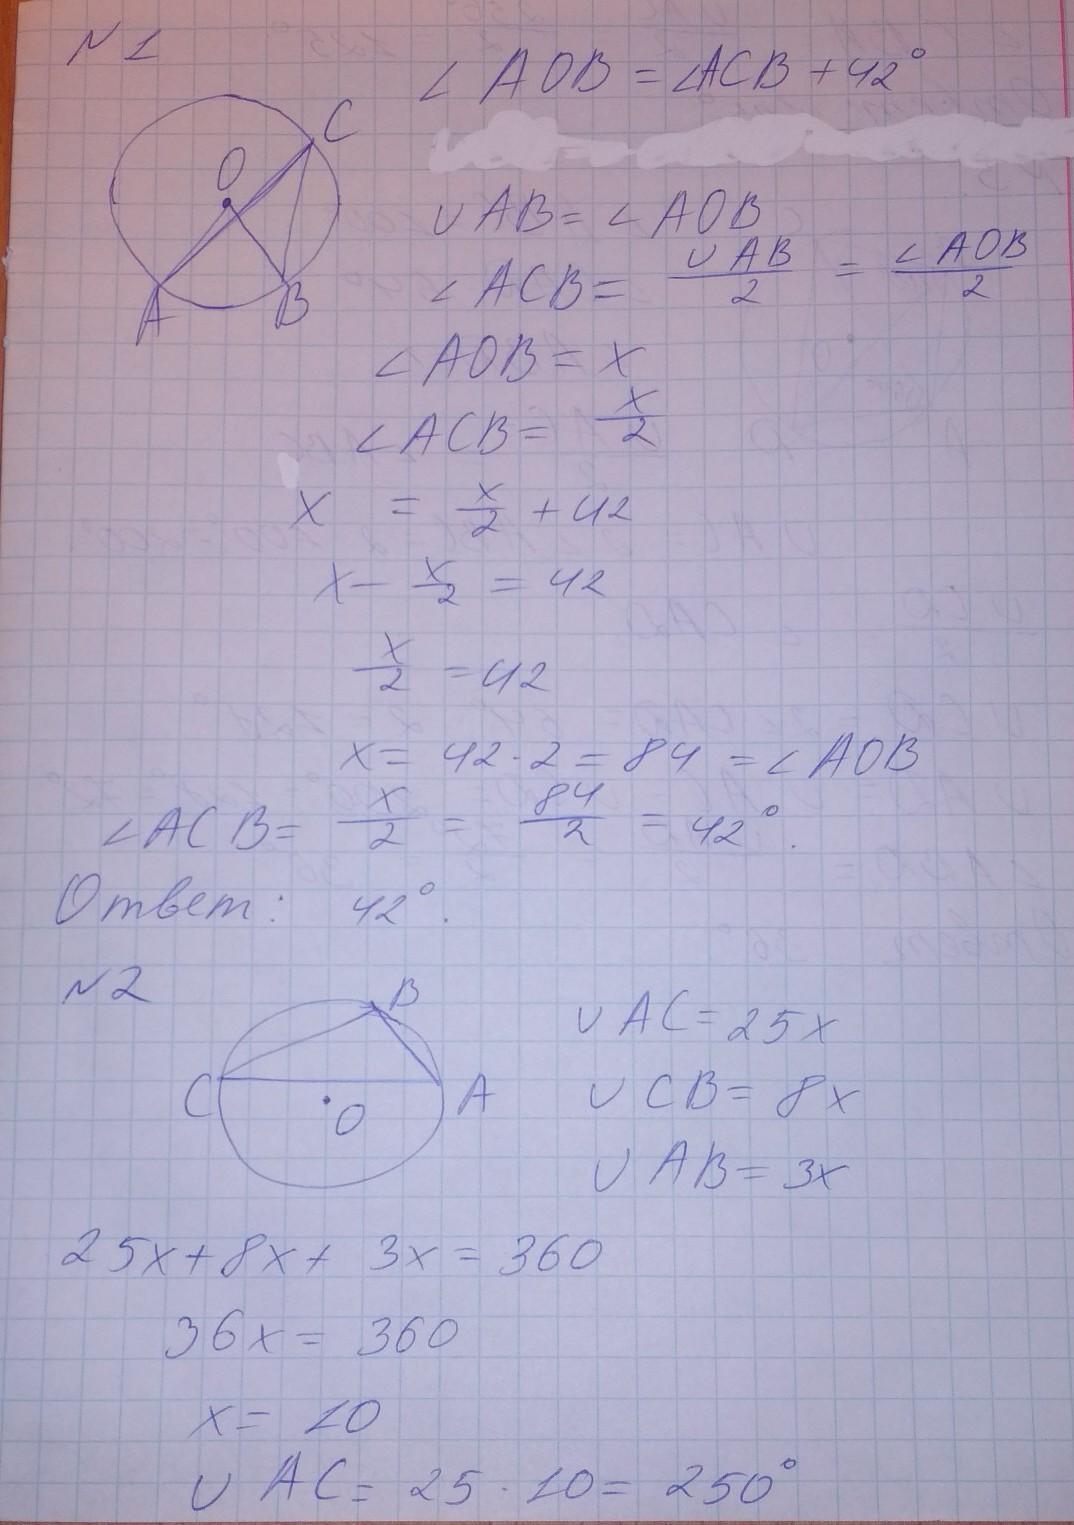 №1
∠AOB = ∠ACB + 42°
C
O
A
B
∪AB = ∠AOB
∠ACB = ∪AB/2 = ∠AOB/2
∠AOB = x
∠ACB = x/2
x = x/2 + 42
x - x/2 = 42
x/2 = 42
x = 42 · 2 = 84 = ∠AOB
∠ACB = x/2 = 84/2 = 42°.
Ответ: 42°.
№2
B
C
O
A
∪AC = 25x
∪CB = 8x
∪AB = 3x
25x + 8x + 3x = 360
36x = 360
x = 10
∪AC = 25 · 10 = 250°